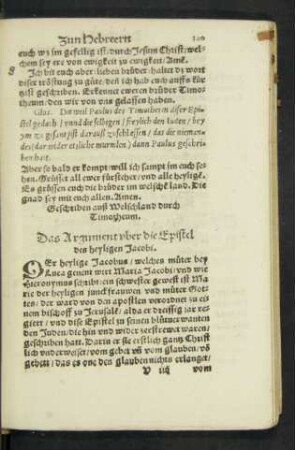 Zun Hebreern
euch wz im gefellig ist/durch Jesum Christ/wel-
chem sey ere von ewigkeit zu ewigkeit/Amē.
Ich bit euch aber/lieben brüder/haltet dz wort
diser tröstung zu gůte/deñ ich hab euch auffs kür
tzest geschriben. Erkennet ewern brůder Timo-
theum/den wir von vns gelassen haben.
Glos. Dweil Paulus des Timothei in diser Epi-
stel
Aber so bald er kompt/will ich sampt im euch se-
hen. Grüsset all ewer fürsteher/vnd alle heylige.
Es grüssen euch die brůder im welschē land. Die
gnad sey mit euch allen. Amen.
Geschriben auß Welschland durch
Timotheum.
Das Argument vber die Epistel
des heyligen Jacobi.
DEr heylige Jacobus/welches můter bey
Luca genent wirt Maria Jacobi/vnd wie
Hieronymus schribt/ein schwester gewest ist Ma-
rie der heyligen junckfrauwen vnd můter Got-
tes/der ward von den apostlen verordnet zu ei-
nem bischoff zu Jerusalē/alda er dreissig jar re-
giert/vnd dise Epistel zu seinen blůtuerwanten
den Juden/die hin vnd wider zerstrewt waren/
geschriben hatt. Darin er sie erstlich gantz Christ
lich vnderweiset/vom gebet vñ vom glauben/vō
gebett/das es one den glauben nichts erlanget/
vom